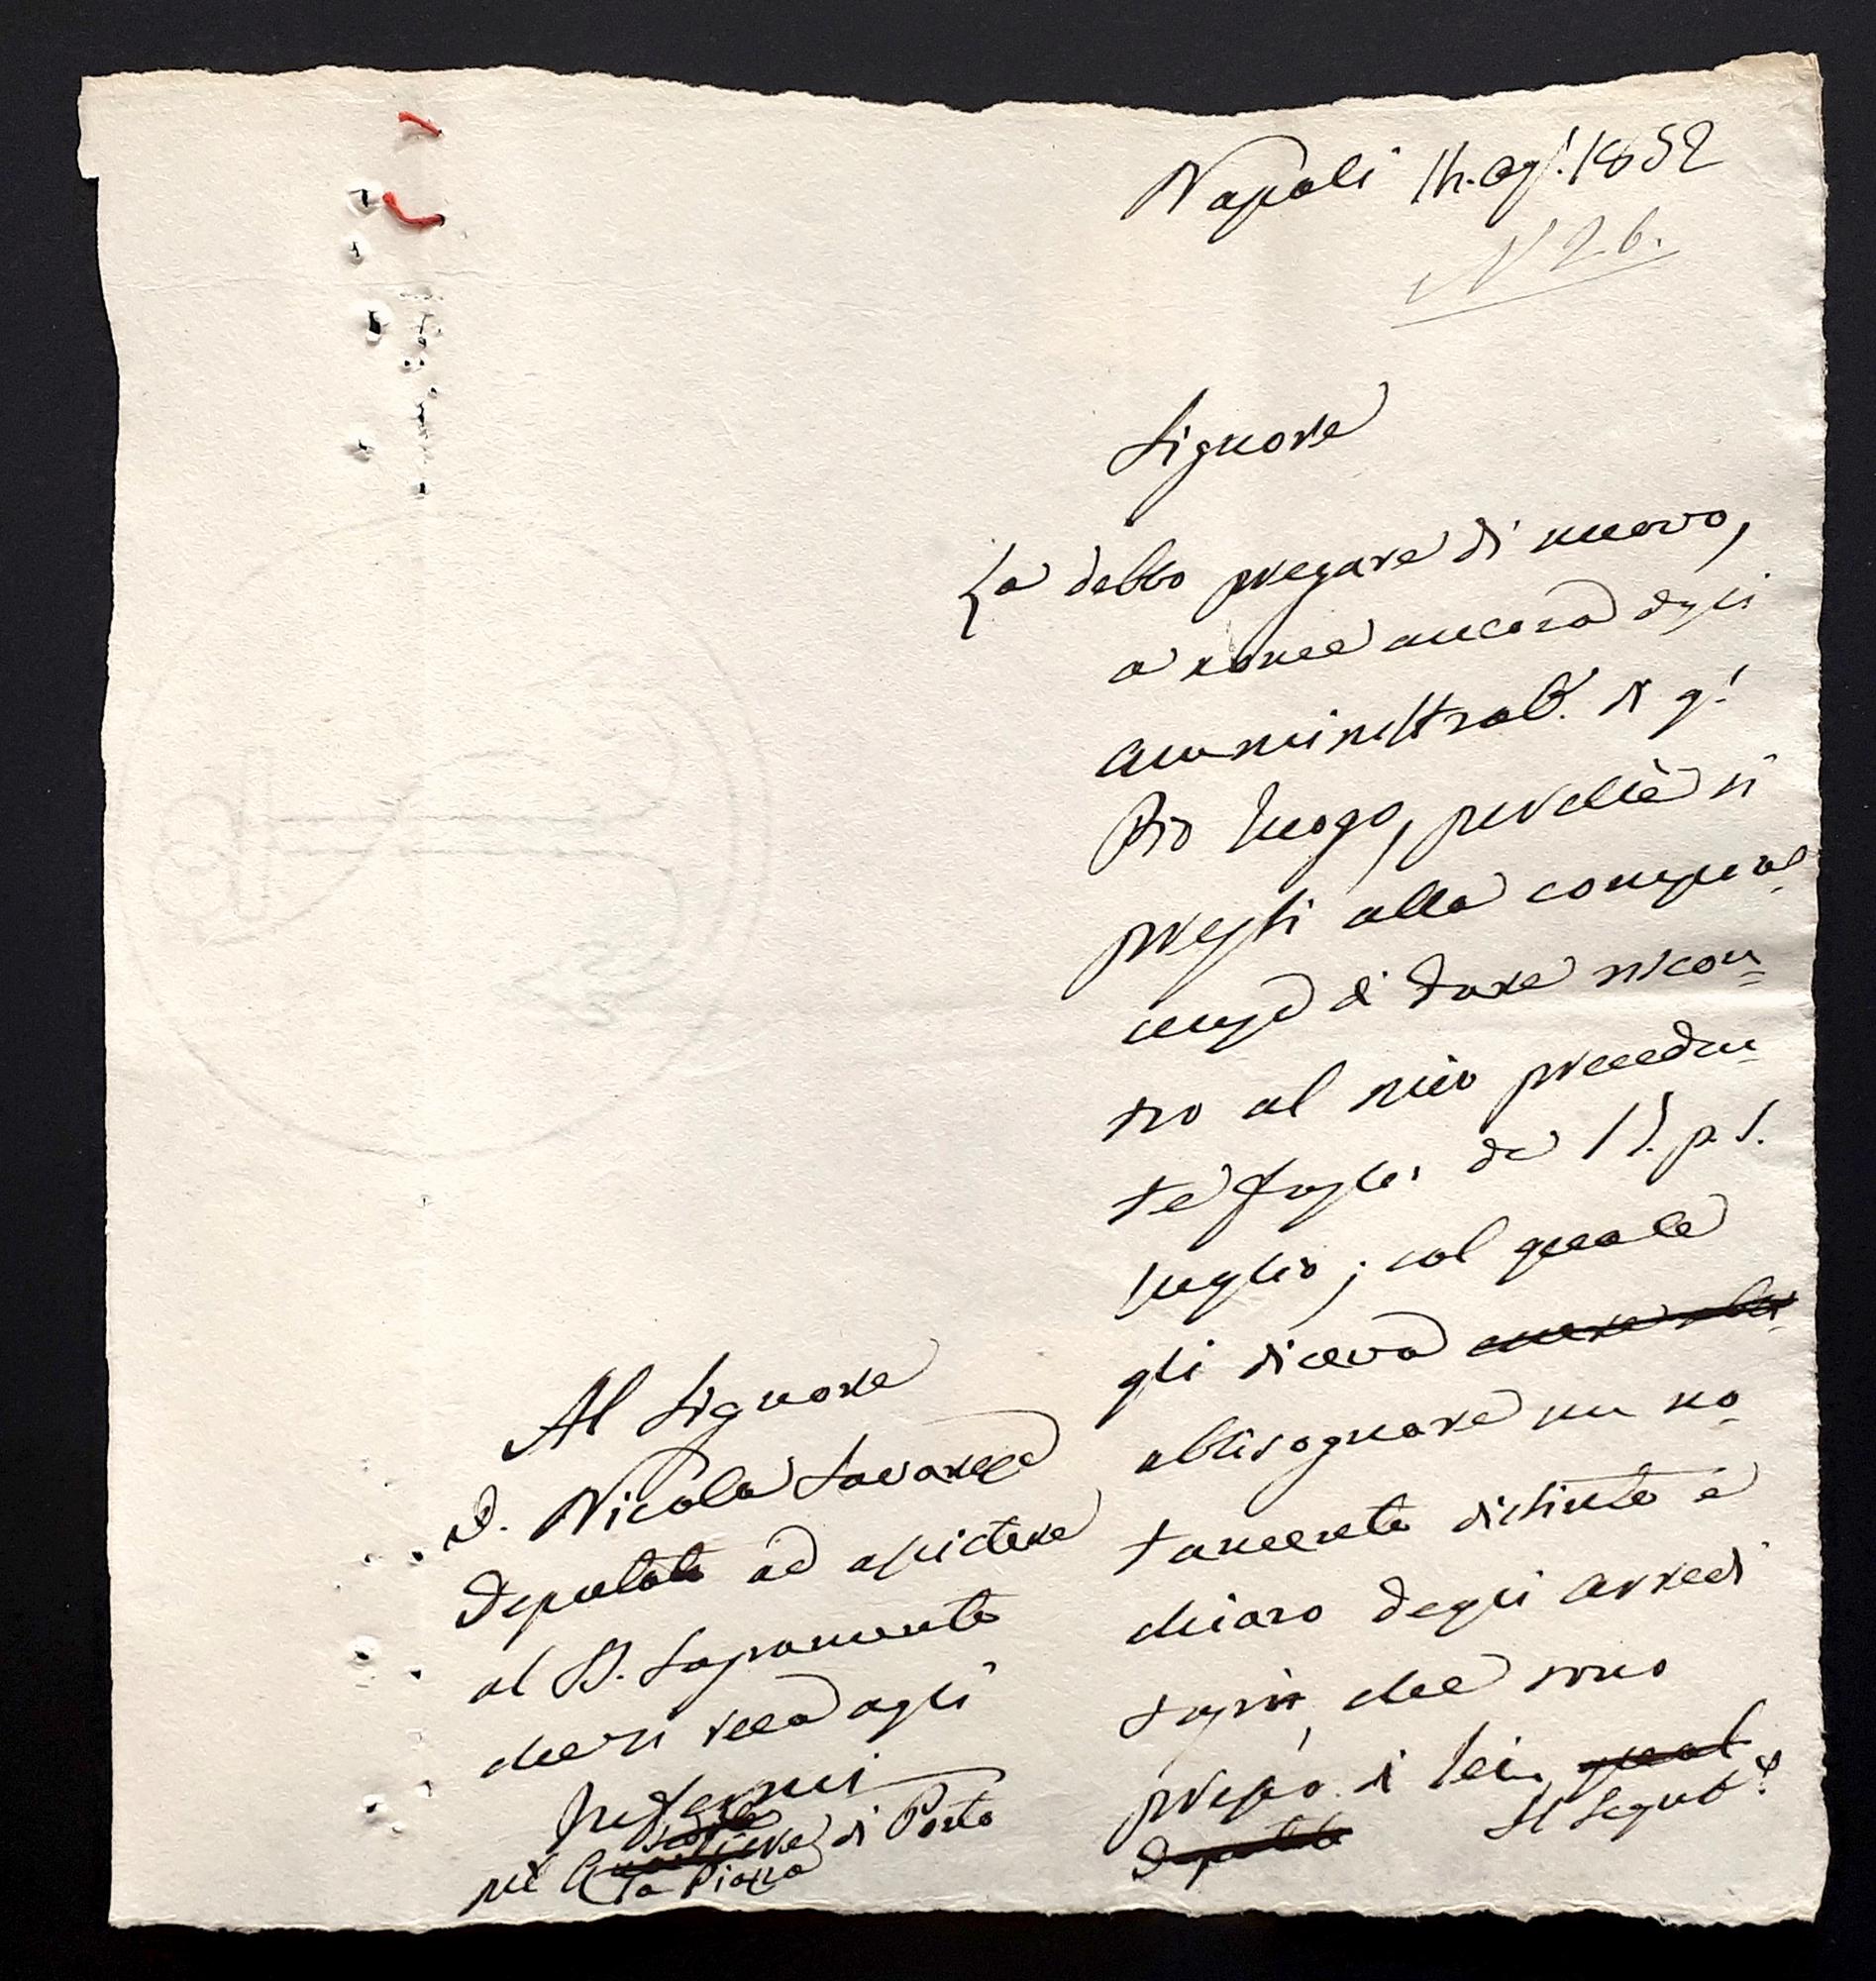 Napoli 14. ag.! 1852
N 26.
Signore
La debbo pregare di nuovo,
a nome ancora degli
amministrat.i di q.!
Pio luogo, perchè si
presti alla compia=
cenza di dare riscon=
tro al mio preceden=
te foglio de' 15. p. s.
luglio; col quale
gli diceva
abbisognare un no=
tamento distinto e
chiaro degli arredi
sagri che sono
presso di lei
Il Segret.o
Al Signore
D. Nicola Savarese
Deputato ad assistere
al SS. Sagramento
che si reca agli
infermi
nel di Porto
la Piazza